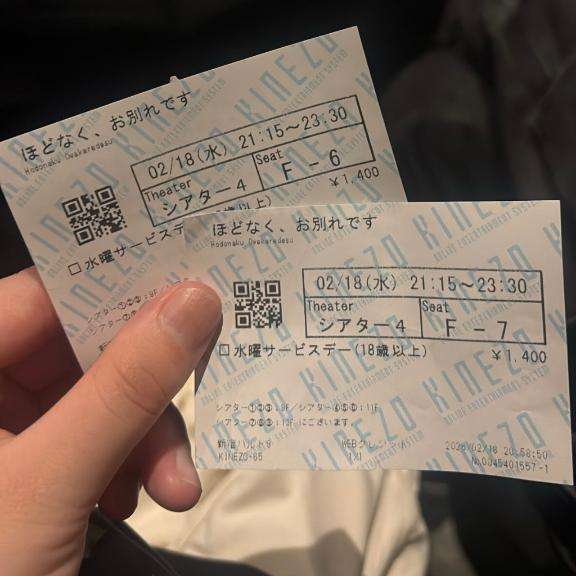 ほどなく、お別れです
Hodonaku Owakaredesu
02/18(水) 21:15～23:30
Theater
シアター4
Seat
F - 6
￥1,400
歳以上)
□水曜サービスデ
ほどなく、お別れです
Hodonaku Owakaredesu
02/18(水) 21:15～23:30
Theater
シアター4
Seat
F - 7
□水曜サービスデー(18歳以上)
￥1,400
シアター①②③:9F／シアター④⑤⑥:11F
シアター⑦⑧⑨:13F にございます。
新宿バルト9
KINEZO-65
1/1
2026/02/18 20:58:50
No.0045401557-1
KINEZO
ONLINE ENTERTAINMENT SYSTEM